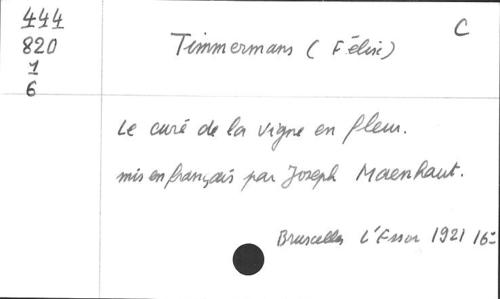 444
820
1
6
C
Timmermans (Félix)
Le curé de la vigne en fleur.
mis en français par Joseph Maenhaut.
Bruxelles L'Essor 1921 16-